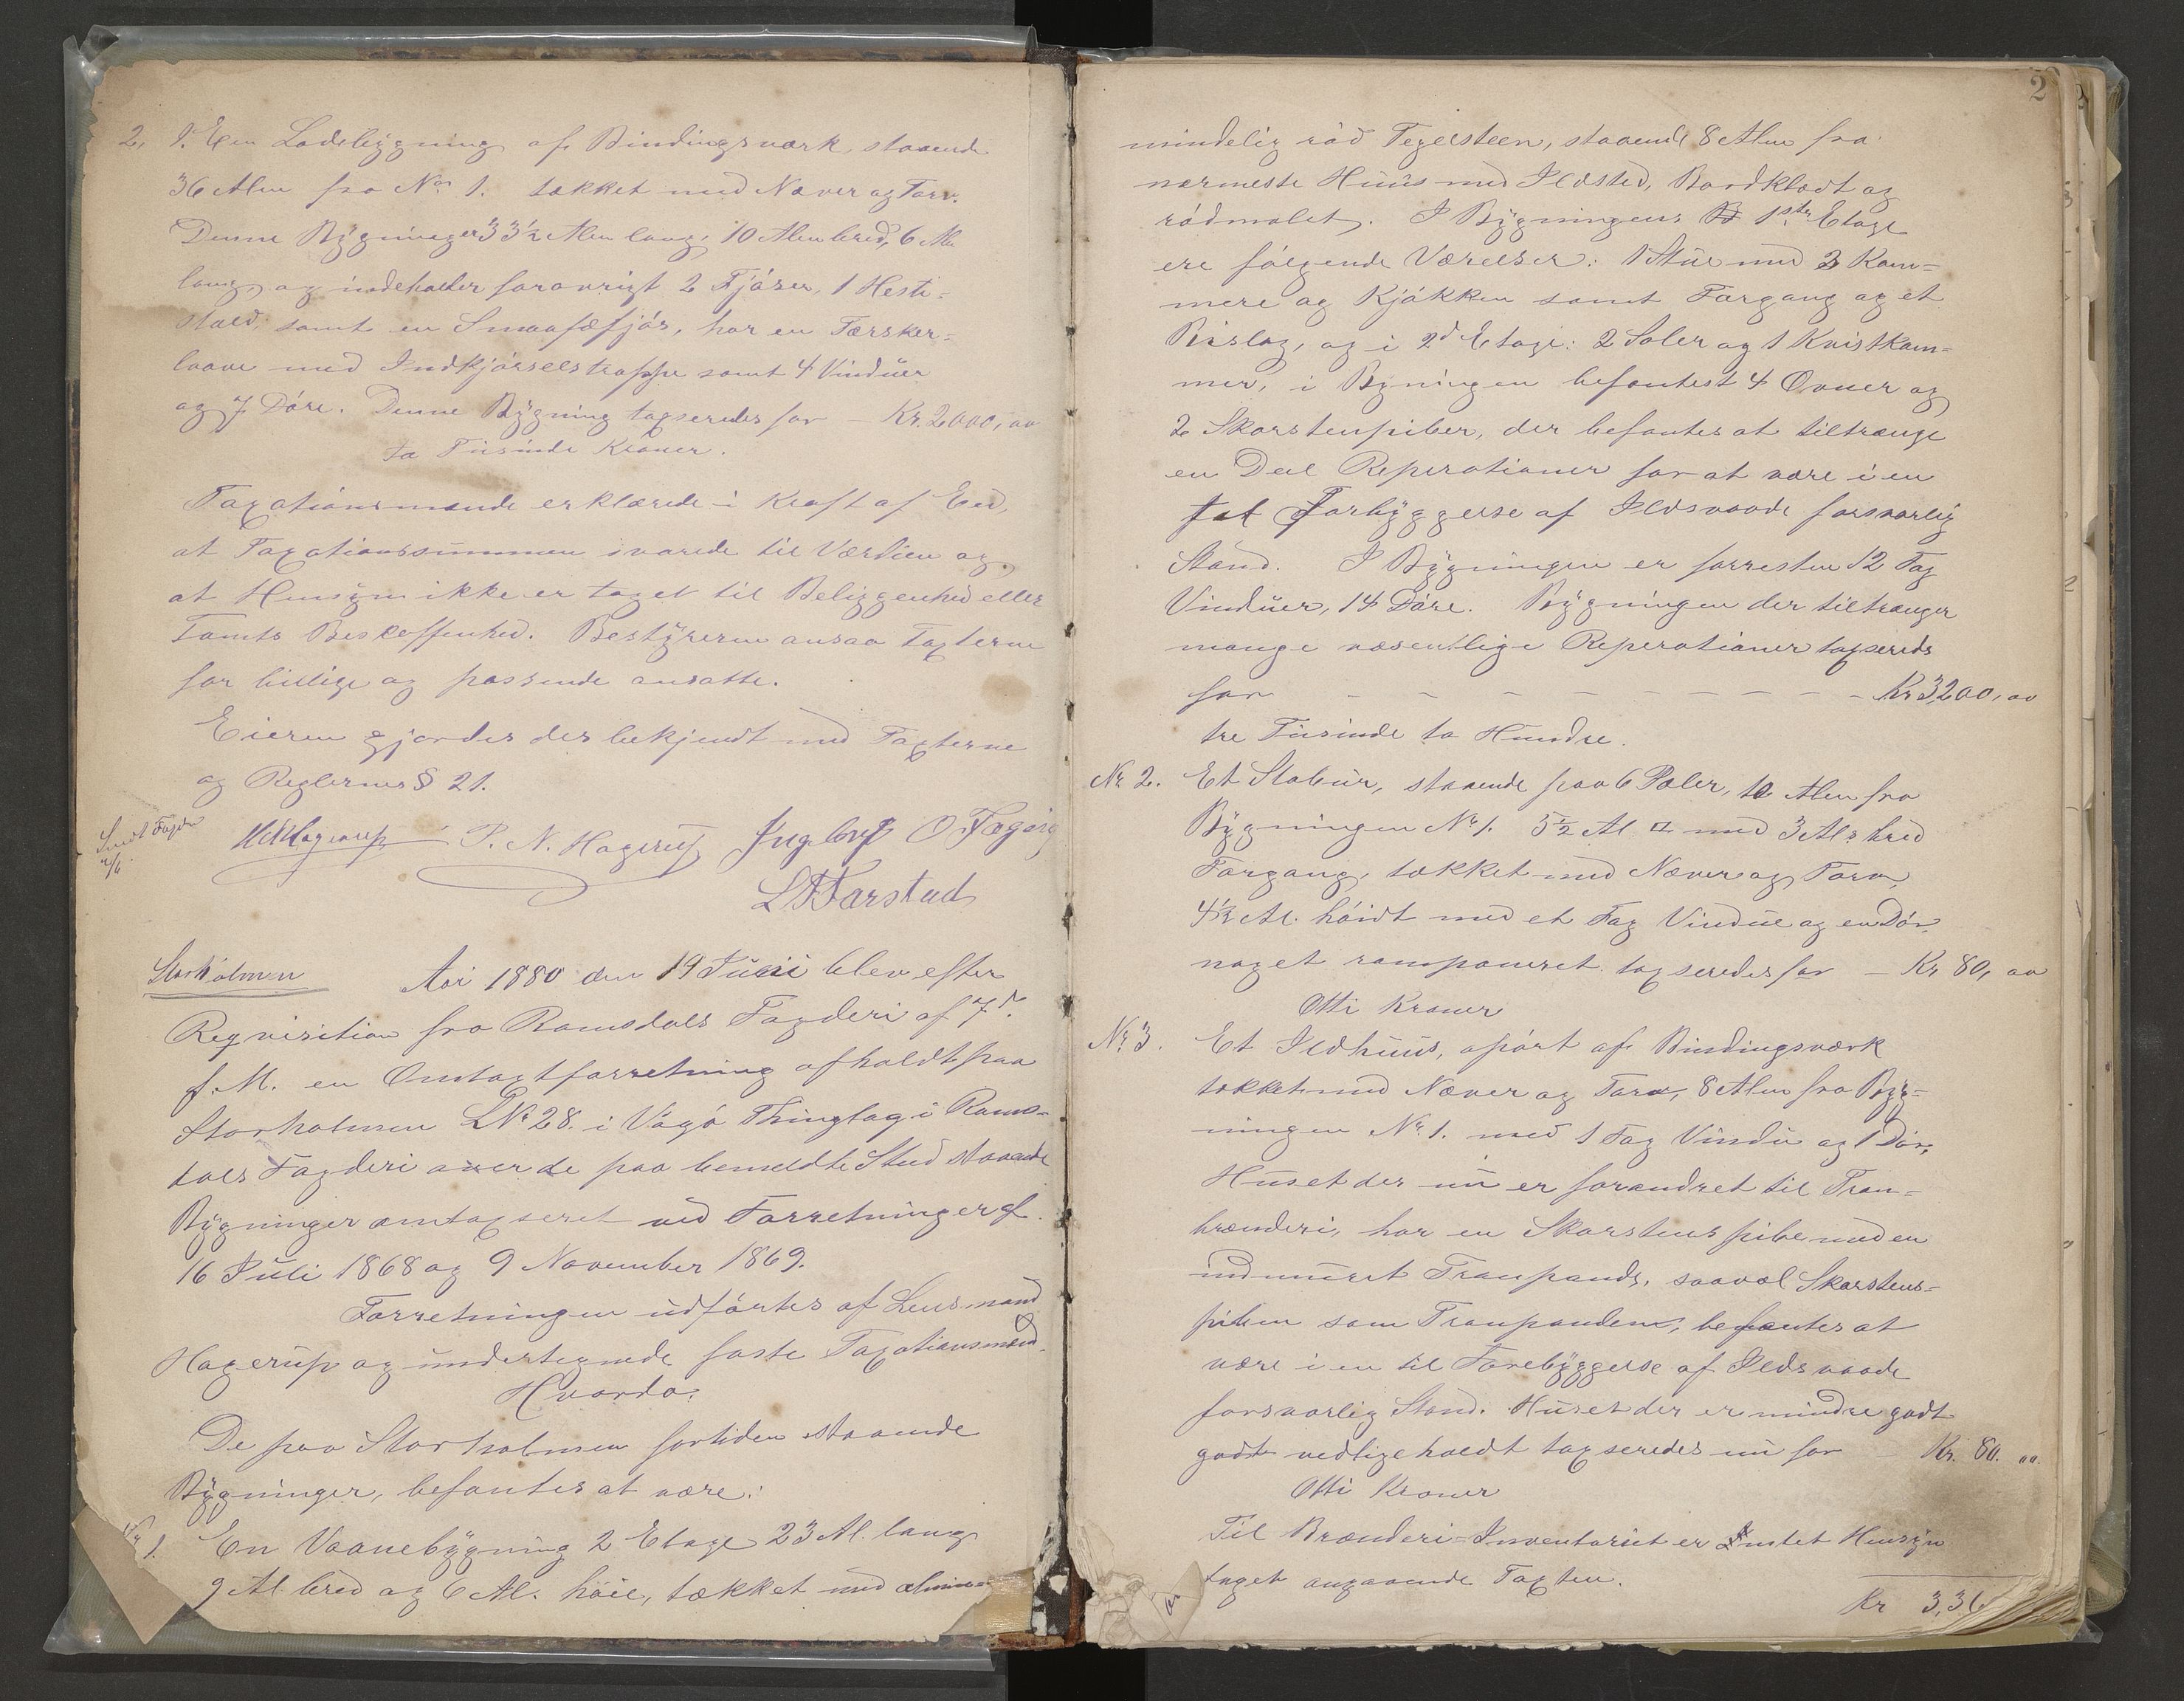 2. 1. Een Ladebygning af Bindingsværk, staaende
36 Alen fra No 1. tækket med Næver og Torv.
Denne Bygning er 33 1/2 Alen lang, 10 Alen bred, 6 Al.
lang, og indeholder forøvrigt 2 Fjøser, 1 Heste-
stald, samt en Smaafæfjøs, har en Tærsker-
laave med Indkjørselstrappe samt 4 Vinduer
og 7 Døre. Denne Bygning taxseredes for – Kr. 2000,00
to Tusinde Kroner.
Taxationsmænde erklærede i Kraft af Eed,
at Taxationssummen svarede til Værdien og
at Hensyn ikke er taget til Beliggenhed eller
Tomts Beskaffenhed. Bestyreren ansaa Taxterne
for billige og passende ansatte.
Eieren gjordes der bekjendt med Taxterne
og Reglernes § 21.
Sendt Fogden
H Hagerup P. N. Hagerup Ingebrgt O Fagerig
L Tarstad
Storholmen
Aar 1880 den 19 Juni blev efter
Reqvisition fra Romsdals Fogderi af 7d.
f. M. en Omtaxtforretning afholdt paa
Storholmen LNr 28. i Vågø Thinglag i Roms-
dals Fogderi over de paa bemeldte Sted staaende
Bygninger omtaxseret ved Forretninger af
16 Juli 1868 og 9 November 1869.
Forretningen udførtes af Lensmand
Hagerup og undertegnede faste Taxationsmænd.
Hvorda:
De paa Storholmen fortiden staaende
Bygninger, befantes at være:
Nr 1. En Vaanebygning 2 Etage 23 Al. lang
9 Al bred og 6 Al. høie, tækket med almin-
2
mindelig rød Tegelsteen, staaende 8 Alen fra
nærmeste Huus med Ildsted, Bordklædt og
rødmalet. I Bygningens 1ste Etage
ere følgende Værelser: 1 Stue med 3 Kam-
mere og Kjøkken samt Forgang og et
Bislag, og i 2d Etage: 2 Saler og 1 Kvistkam-
mer, i Bygningen befantest 4 Ovner og
2 Skorstenpiber, der befantes at tiltrænge
en Deel Reperationer for at være i en
til Forbyggelse af Ildsvaade forsvarlig
Stand. I Bygningen er forresten 12 Fag
Vinduer, 14 Døre. Bygningen der tiltrænger
mange væsentlige Reperationer taxseredes
for – – – – – – – – – Kr 3,200,00
tre Tusinde to Hundre.
Nr 2. Et Stabur, staaende paa 6 Pæler, 10 Alen fra
Bygningen Nr 1. 5 1/2 Al □ med 3 Al. bred
Forgang, tækket med Næver og Torv,
4 1/2 Al. høidt med et Fag Vindue og en Dør
noget ramponeret taxseredes for – Kr 80,00
Otti Kroner
Nr 3. Et Ildhuus, opført af Bindingsværk
tækket med Næver og Torv, 8 Alen fra Byg-
ningen Nr 1. med 1 Fag Vindu og 1 Dør,
Huset der nu er forandret til Tran-
brænderi, har en Skorstenspibe med en
indmuret Tranpande, saavel Skorstens-
piben som Tranpanden, befantes at
være i en til Forebyggelse af Ildsvaade
forsvarlig Stand. Huset der er mindre godt
godt vedligeholdt taxseredes nu for – Kr. 80.00.
Otti Kroner
Til Brænderi-Inventariet er Intet Hensyn
taget angaaende Taxten.
Kr 3,36